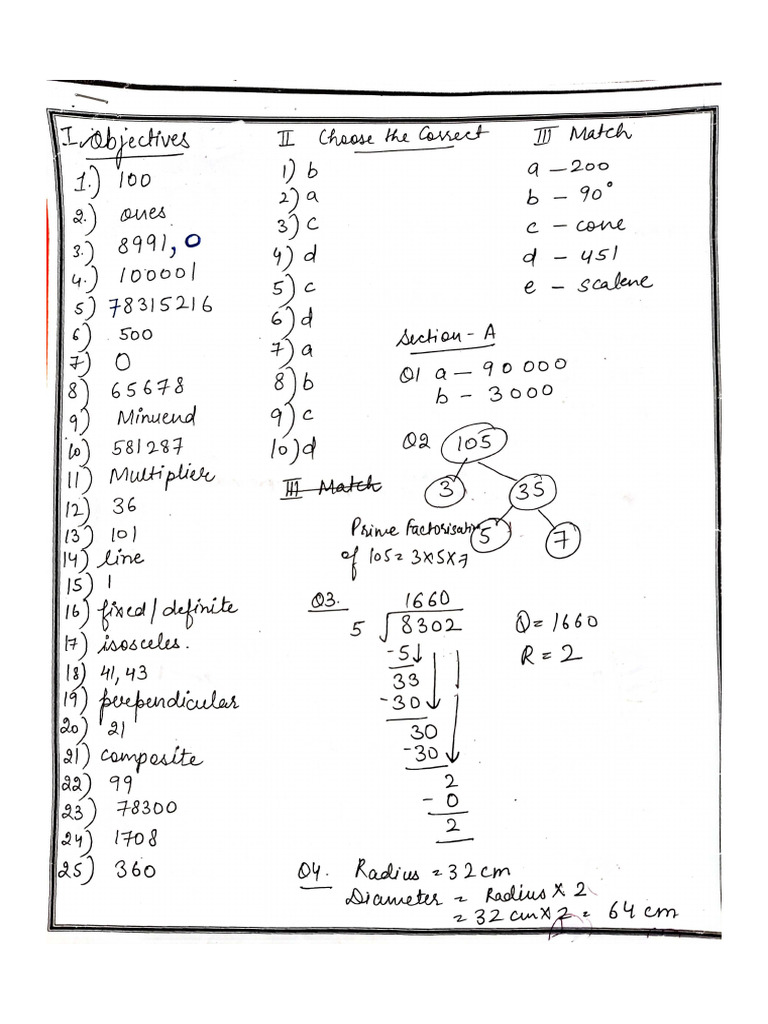 I. Objectives
1.) 100
2.) ones
3.) 8991, 0
4.) 100001
5) 78315216
6) 500
7) 0
8) 65678
9) Minuend
10) 581287
11) Multiplier
12) 36
13) 101
14) line
15) 1
16) fixed/definite
17) isosceles.
18) 41, 43
19) perpendicular
20) 21
21) composite
22) 99
23) 78300
24) 1708
25) 360
II Choose the Correct
1) b
2) a
3) c
4) d
5) c
6) d
7) a
8) b
9) c
10) d
III Match
III Match
a - 200
b - 90°
c - cone
d - 451
e - scalene
Section - A
Q1 a - 90000
b - 3000
Q2 105
3 35
5 7
Prime Factorisation
of 105 = 3×5×7
Q3. 1660
5 √8302
-5
33
-30
30
-30
2
- 0
2
Q = 1660
R = 2
Q4. Radius = 32 cm
Diameter = Radius × 2
= 32 cm × 2 = 64 cm